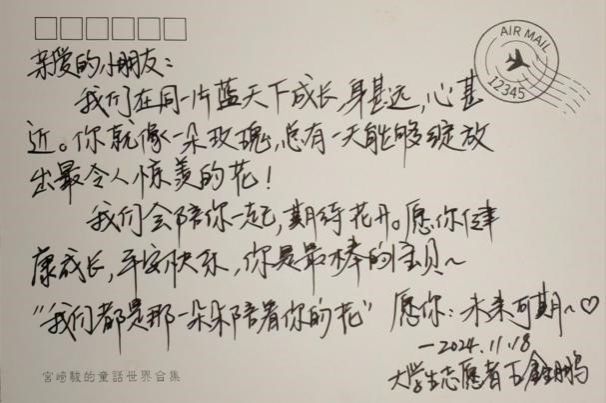 AIR MAIL
12345
亲爱的小朋友：
我们在同一片蓝天下成长，身甚远，心甚
近。你就像一朵玫瑰，总有一天能够绽放
出最令人惊羡的花！
我们会陪你一起，期待花开。愿你健
康成长，平安快乐，你是最棒的宝贝～
“我们都是那一朵朵陪着你的花” 愿你：未来可期～♡
—2024.11.18
宫崎駿的童話世界合集
大学生志愿者 王鹏